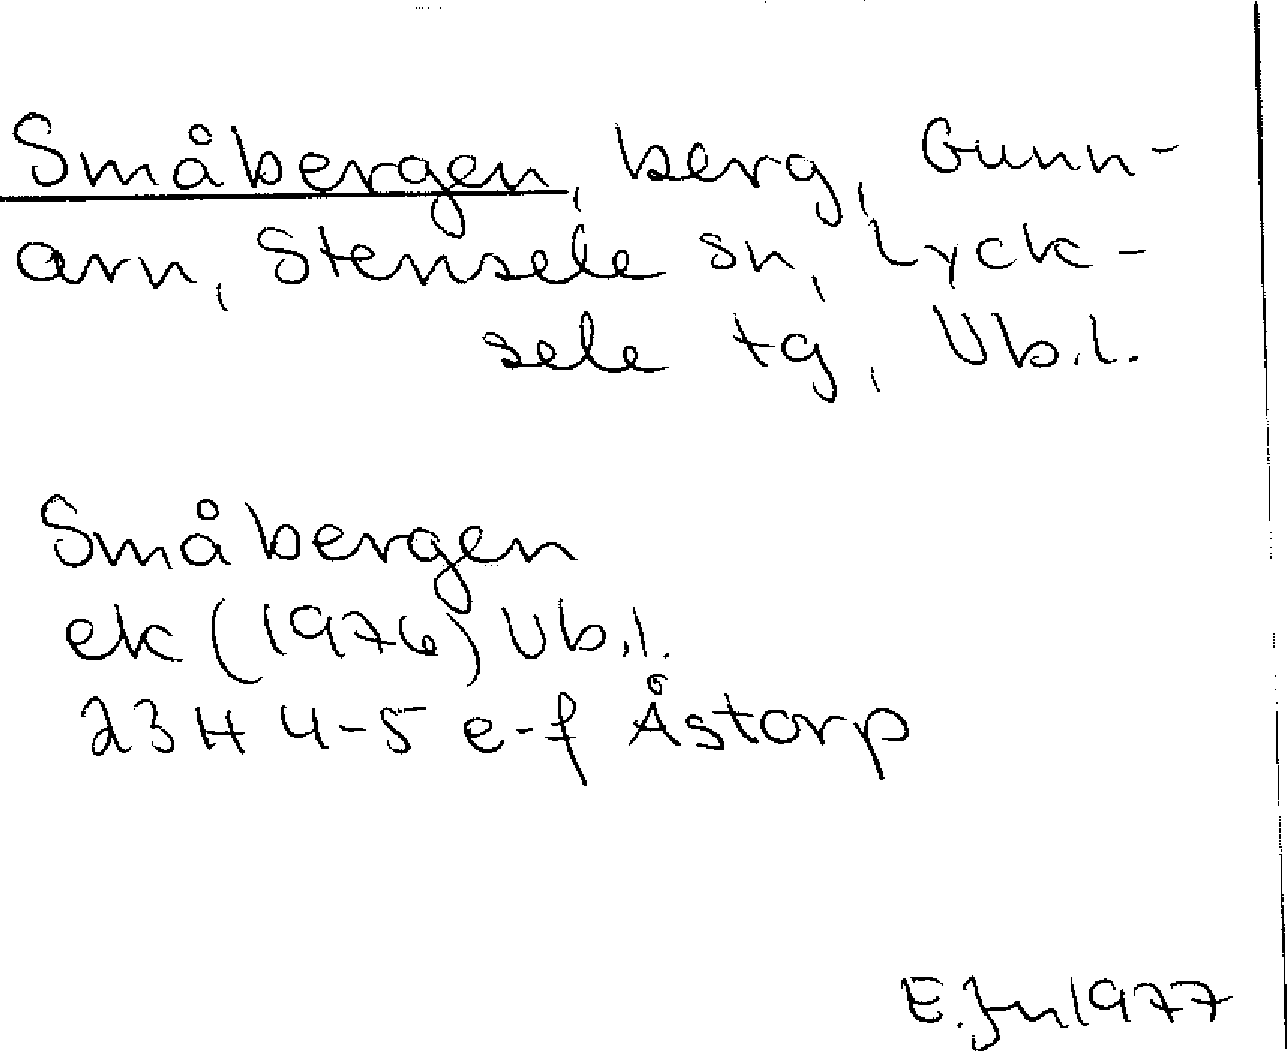 Småbergen, berg, Gunn-
arn, Stensele sn, Lyck-
sele tg, Vb.l.
Småbergen
ek (1976) Vb.l.
23H 4-5 e-f Åstorp
E. Jn 1977